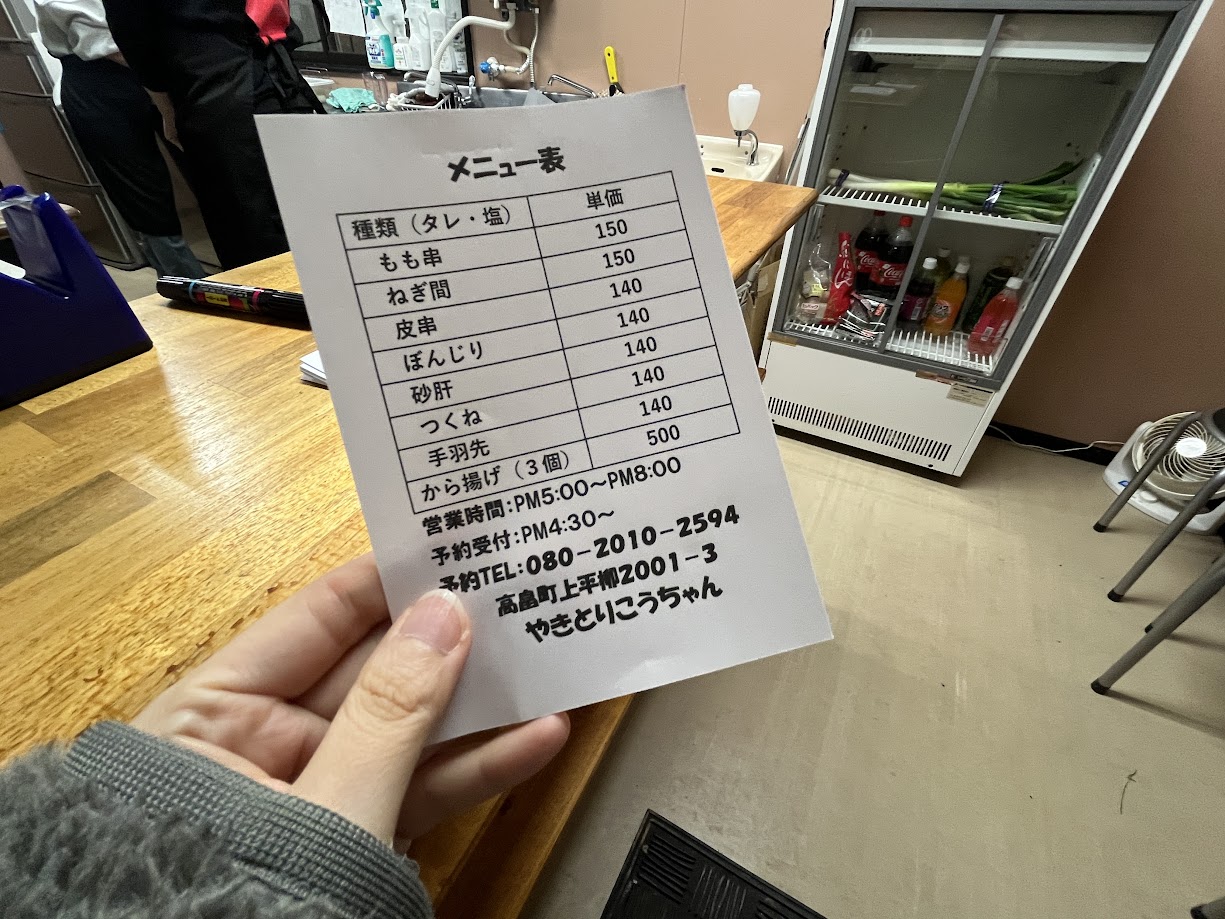 メニュー表
種類（タレ・塩） 単価
もも串 150
ねぎ間 150
皮串 140
ぼんじり 140
砂肝 140
つくね 140
手羽先 140
から揚げ（３個） 500
営業時間:PM5:00～PM8:00
予約受付:PM4:30～
予約TEL:080-2010-2594
高畠町上平柳2001-3
やきとりこうちゃん